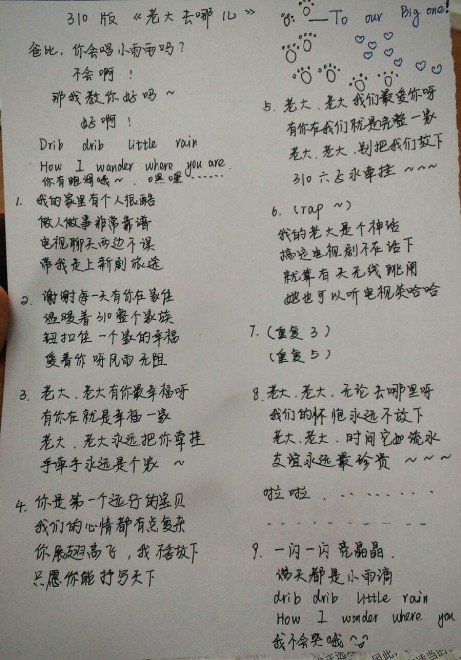 310 版 《老大去哪儿》 —To our Big one!
爸比，你会唱小雨雨吗？
不会啊！
那我教你好吗～
好啊！
Drib drib little rain
How I wander where you are.
你有跑调哦～，嘿嘿……
1. 我的家里有个人很酷
做人做事非常靠谱
电视聊天两边不误
带我走上新剧旅途
2. 谢谢每一天有你在家住
温暖着310整个家族
钮扣住一个家的幸福
爱着你呀风雨无阻
3. 老大，老大有你最幸福呀
有你在就是幸福一家
老大，老大永远把你牵挂
手牵手永远是个家 ～
4. 你是第一个远行的宝贝
我们的心情都有点复杂
你展翅高飞，我活放下
只愿你能抒写天下
5. 老大，老大我们最爱你呀
有你在我们就是完整一家
老大，老大，别把我们放下
310 六占永牵挂 ～～～
6. (rap ～)
我的老大是个神话
搞定电视剧不在话下
就算有天无线跳闸
她也可以听电视笑哈哈
7. (重复3)
(重复5)
8. 老大，老大，无论去哪里呀
我们的怀抱永远不放下
老大，老大，时间它如流水
友谊永远最珍贵 ～～～
啦啦．……
9. 一闪一闪亮晶晶．
满天都是小雨滴
drib drib little rain
How I wonder where you
我不会哭哦～